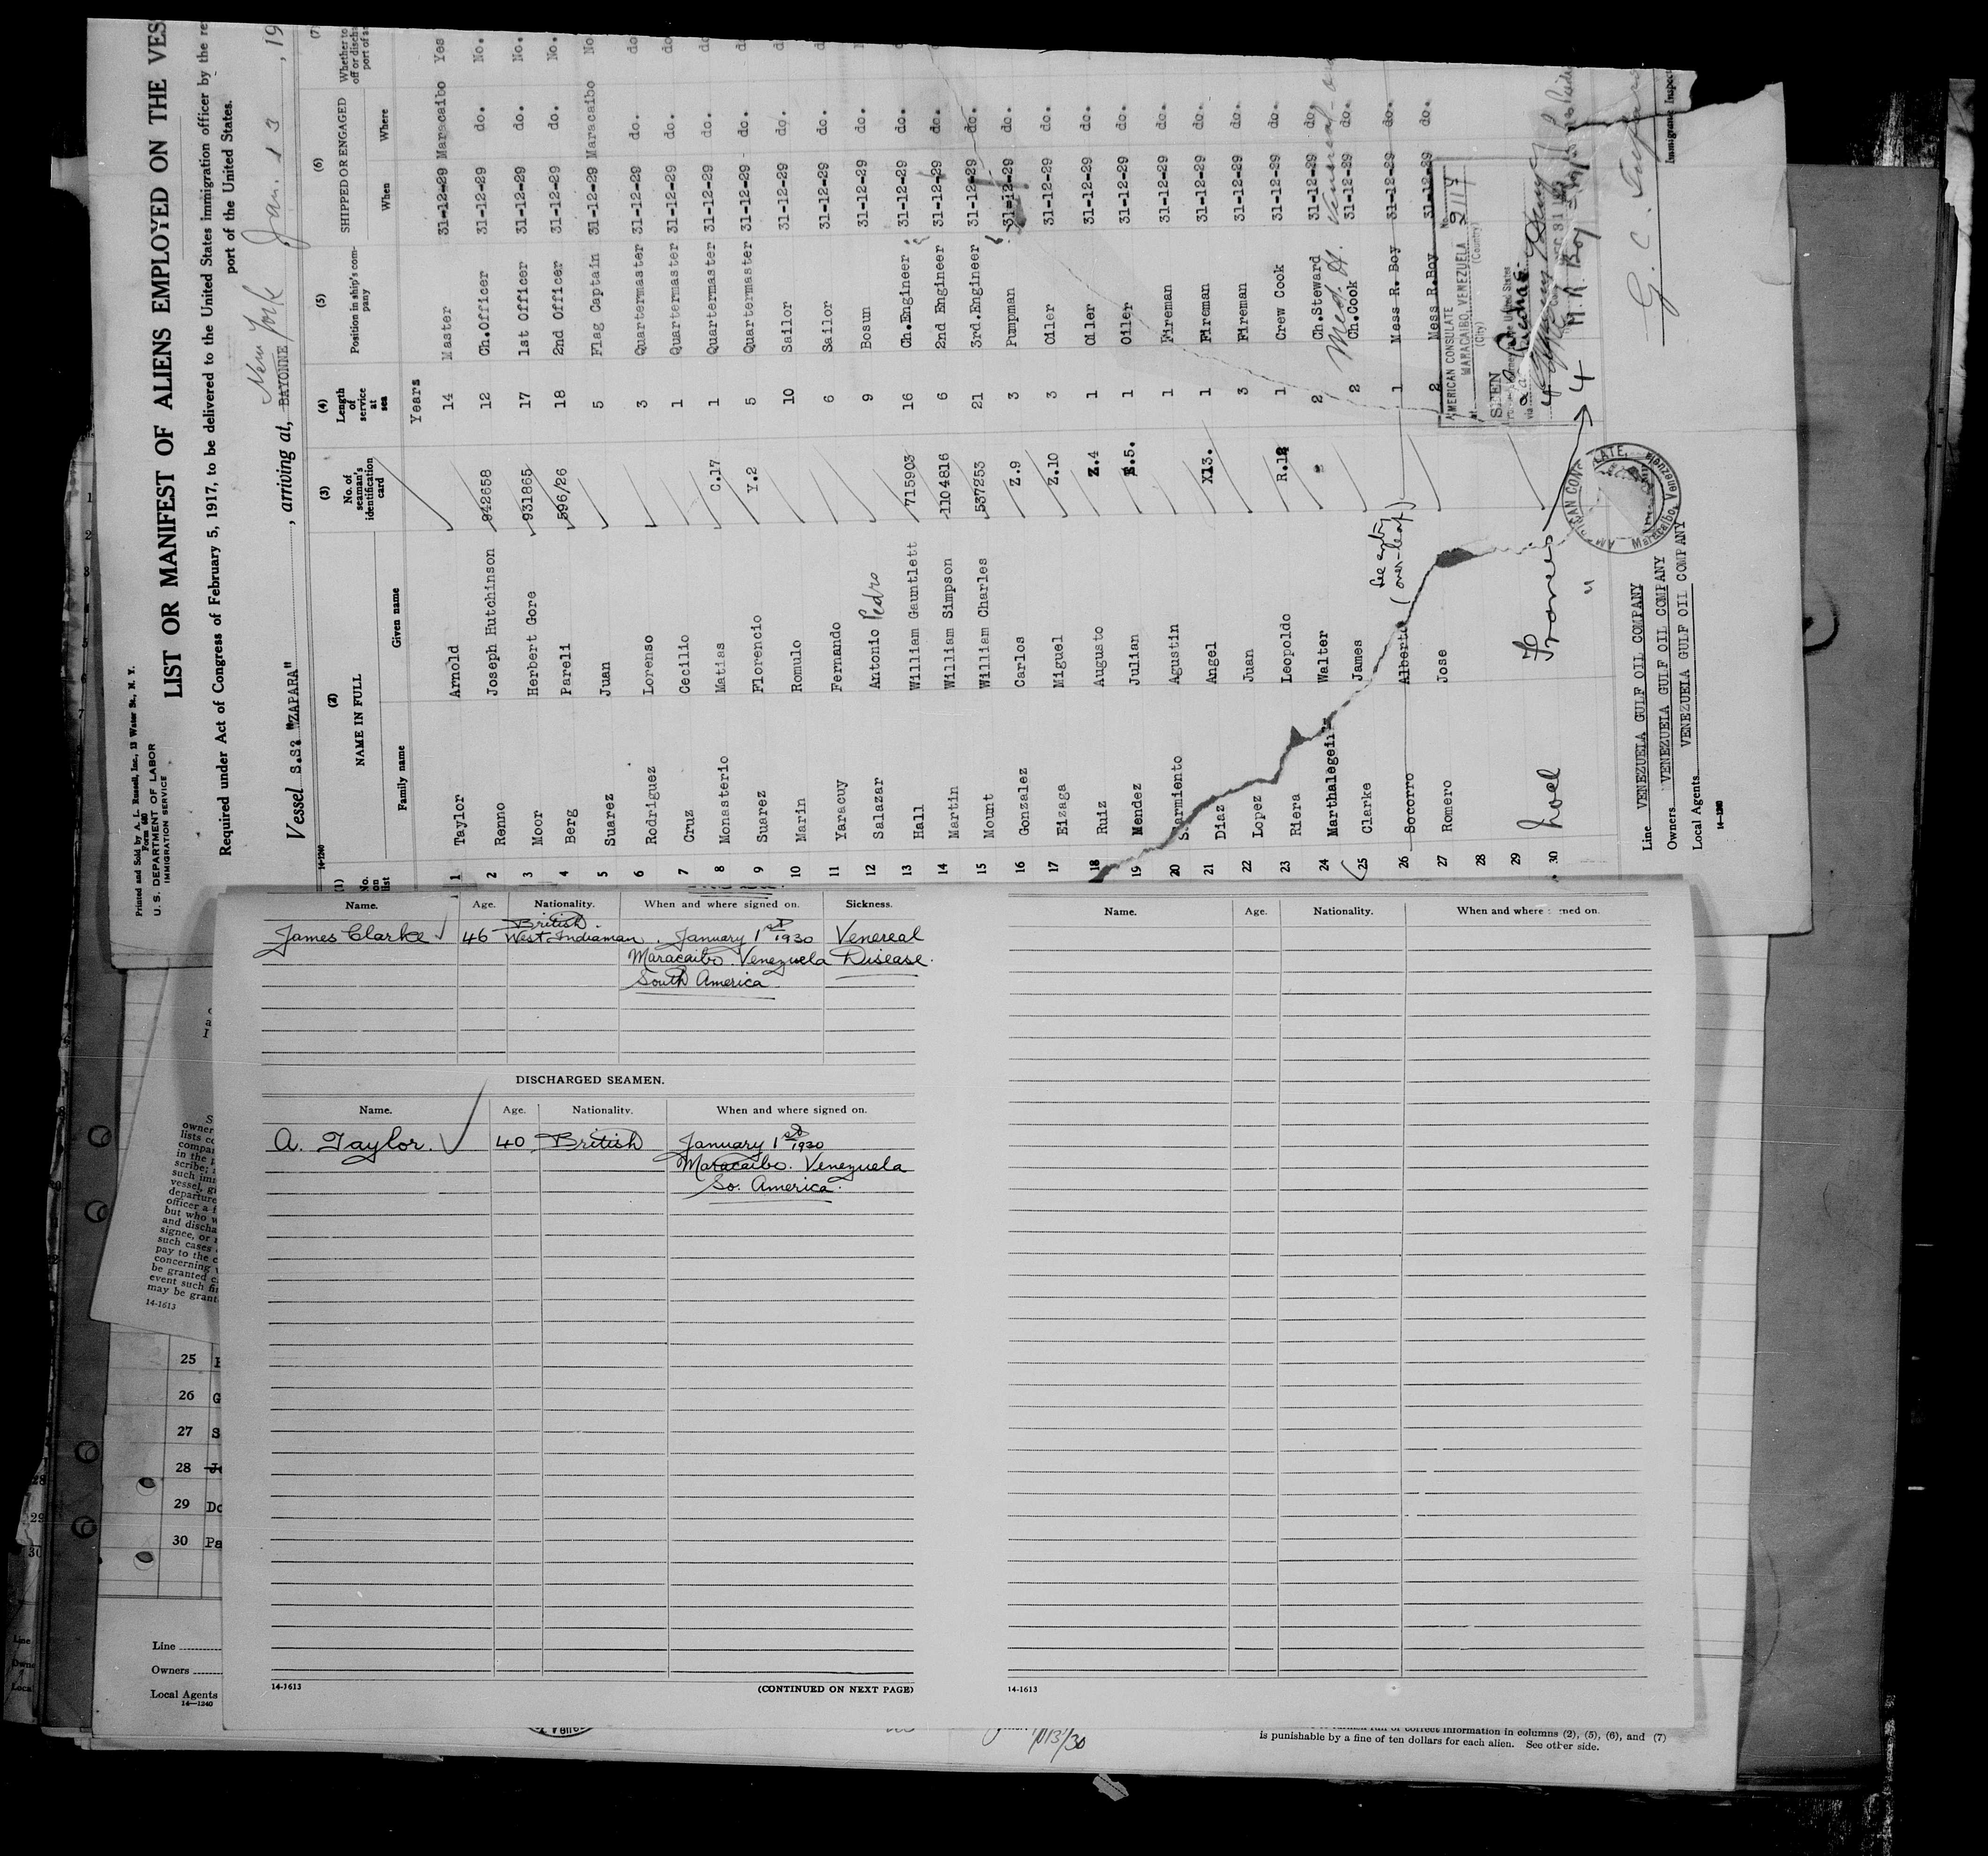 Printed and Sold by A. L. Russell, Inc., 13 Water St., N. Y.
Form 680
U. S. DEPARTMENT OF LABOR
IMMIGRATION SERVICE
LIST OR MANIFEST OF ALIENS EMPLOYED ON THE VES
Required under Act of Congress of February 5, 1917, to be delivered to the United States immigration officer by the re
port of the United States.
Vessel S.S. "ZAPARA" , arriving at, BAYONNE New York Jan. 13 , 19
14-1240
(1) No. on list (2) NAME IN FULL (3) No. of seaman's identification card (4) Length of service at sea (5) Position in ship's company (6) SHIPPED OR ENGAGED (7) Whether to
Family name Given name When Where
Years
1 Taylor Arnold 14 Master 31-12-29 Maracaibo Yes
2 Renno Joseph Hutchinson 942658 12 Ch.Officer 31-12-29 do. No.
3 Moor Herbert Gore 931865 17 1st Officer 31-12-29 do. No.
4 Berg Pareli 596/26 18 2nd Officer 31-12-29 do. No.
5 Suarez Juan 5 Flag Captain 31-12-29 Maracaibo No
6 Rodriguez Lorenso 3 Quartermaster 31-12-29 do. do
7 Cruz Cecilio 1 Quartermaster 31-12-29 do. do
8 Monasterio Matias C.17 1 Quartermaster 31-12-29 do. do
9 Suarez Florencio Y.2 5 Quartermaster 31-12-29 do. do
10 Marin Romulo 10 Sailor 31-12-29 do. d
11 Yaracuy Fernando 6 Sailor 31-12-29 do. d
12 Salazar Antonio Pedro 9 Bosun 31-12-29 do.
13 Hall William Gauntlett 715903 16 Ch.Engineer 31-12-29 do.
14 Martin William Simpson 1104816 6 2nd Engineer 31-12-29 do.
15 Mount William Charles 537253 21 3rd.Engineer 31-12-29 do.
16 Gonzalez Carlos Z.9 3 Pumpman 31-12-29 do.
17 Eizaga Miguel Z.10 3 Oiler 31-12-29 do.
18 Ruiz Augusto Z.4 1 Oiler 31-12-29 do.
19 Mendez Julian 5. 1 Oiler 31-12-29 do.
20 Sarmiento Agustin 1 Fireman 31-12-29 do.
21 Diaz Angel X13. 1 Fireman 31-12-29 do.
22 Lopez Juan 3 Fireman 31-12-29 do.
23 Riera Leopoldo R.12 1 Crew Cook 31-12-29 do.
24 Marthalegein Walter 2 Ch.Steward 31-12-29 do.
Med. H. Venereal
25 Clarke James 2 Ch.Cook 31-12-29 do.
See entry (over-leaf)
26 Socorro Alberto 1 Mess R. Boy 31-12-29 do.
27 Romero Jose 2 Mess R.Boy 31-12-29 do.
28
29
30 Noel Frances 4 M. R. Boy
AMERICAN CONSULATE No. 2117
at MARACAIBO, VENEZUELA
(City) (Country)
SEEN
Line VENEZUELA GULF OIL COMPANY
Owners VENEZUELA GULF OIL COMPANY
Local Agents VENEZUELA GULF OIL COMPANY
14-1240
Immigrant Inspec
Name. Age. Nationality. When and where signed on. Sickness.
James Clarke 46 British West Indiaman. January 1st 1930 Venereal
Maracaibo. Venezuela Disease.
South America
DISCHARGED SEAMEN.
Name. Age. Nationality. When and where signed on.
A. Taylor. 40 British January 1st 1930
Maracaibo. Venezuela
So. America.
14-1613 (CONTINUED ON NEXT PAGE)
Name. Age. Nationality. When and where signed on.
14-1613
owner
lists co
compan
in the
scribe;
such im
vessel, g
departure
officer a f
but who w
and discha
signee, or
such cases
pay to the c
concerning
be granted c
event such fi
may be grant
14-1613
25
26 G
27 S
28
29 Do
30 Pa
Line
Owners
Local Agents
14-1240
correct information in columns (2), (5), (6), and (7)
is punishable by a fine of ten dollars for each alien. See other side.